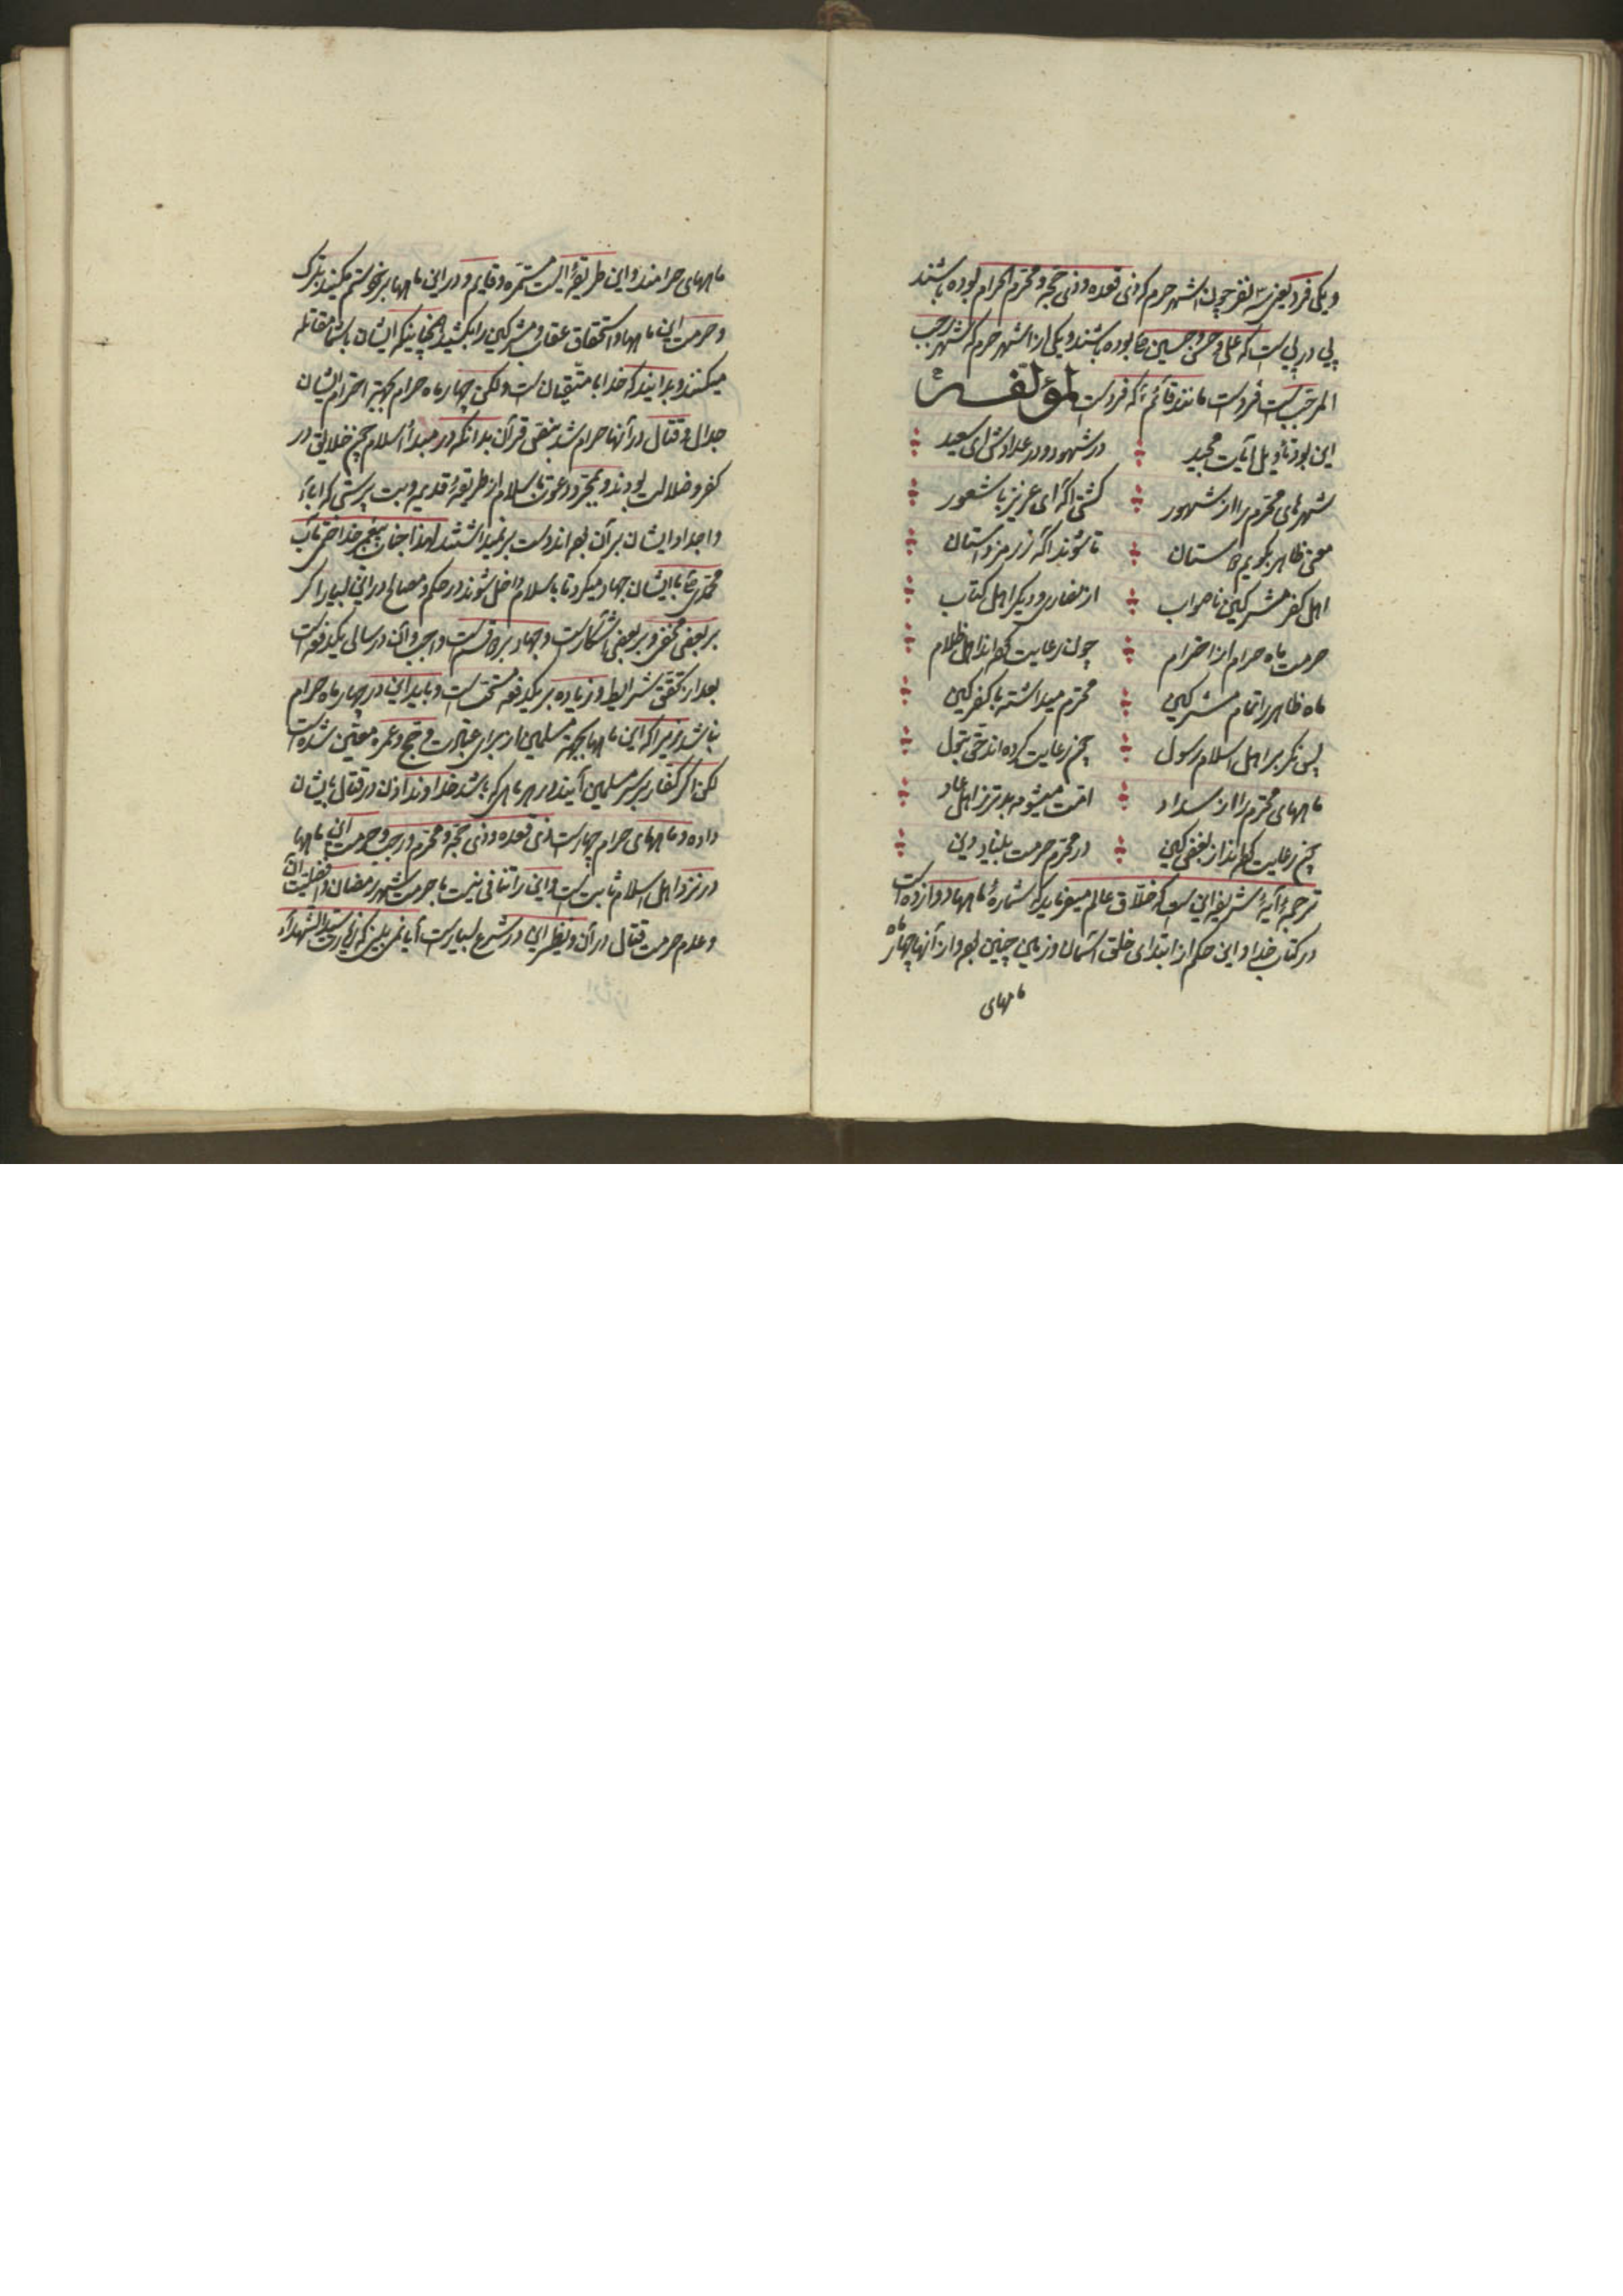 و یکی فرد یعنی سه نفر چون اشهر حرم که ذی قعده و ذی حجه و محرم الحرام بوده باشند
پی در پی است که علی و حسن و حسین ع بوده باشند و یکی از اشهر حرم که شهر رجب
المرجب است فرد است مانند قائم ع که فرد است لمؤلفه
این بود تأویل آیات مجید در شهور و در عدادش ای سعید
شهرهای محترم را از شهور گشتی آگه ای عزیز با شعور
معنی ظاهر بگویم تا شوند آگه ز رمز داستان
اهل کفر مشرکین ناصواب از نصاری و دیگر اهل کتاب
حرمت ماه حرام از احترام چون رعایت کرده‌اند اهل ظلام
ماه ظاهر را تمام مشرکین محترم میداشته با کفر کین
پس نگر بر اهل اسلام رسول چون رعایت کرده‌اند حق بتول
ماههای محترم را از سداد امت میشوم بدتر ز اهل عاد
چون رعایت کرده‌اند از بغض کین در محرم حرمت بنیاد دین
ترجمهٔ آیهٔ شریفه این است که خلاق عالم میفرماید که شمارهٔ ماهها دوازده است
در کتاب خدا و این حکم از ابتدای خلق آسمان و زمین چنین بود و از آنها چهار ماه
ماههای
ماههای حرامند و این طریقهٔ ایست مستمره و قایم و در این ماهها بر خود ستم مکنید بترک
و حرمت این ماهها و استحقاق عقاب و مشرکین را بکشید همچنانکه ایشان با شما مقاتله
میکنند و بدانید که خدا با متقیان است ولکن چهار ماه حرام بجهة احترام ایشان
جدال و قتال در آنها حرام شد بنص قرآن بدانکه در مبدأ اسلام جمیع خلایق در
کفر و ضلالت بودند و بمجرد دعوت باسلام از طریقهٔ قدیمه و بت پرستی که آباء
و اجداد ایشان بر آن بوده‌اند دست بر نمیداشتند لهذا جناب پیغمبر خدا ختمی مآب
محمد ص با ایشان جهاد میکرد تا باسلام داخل شوند و حکم و مصالح در این بسیار اگر
بر بعضی مخفی و بر بعضی آشکار است و جهاد بر دو قسم است واجب و آن در سالی یکدفعه است
بعد از تحقق شرایط و زیاده بر یکدفعه مستحب است و باید این در چهار ماه حرام
نباشد زیرا که این ماهها بجهة مسلمین از برای عبادت و حج و عمره معین شده است
لکن اگر کفار بر سر مسلمین آیند در هر ماهی که باشد خداوند اذن در قتال بایشان
داده و ماههای حرام چهار است ذی قعده و ذی حجه و محرم و رجب و حرمت این ماهها
در نزد اهل اسلام ثابت است و این را تنافی نیست با حرمت شهر رمضان و افضلیت آن
و عدم حرمت قتال در آن و نظیر این در شرع بسیار است آیا نمی بینی که زیارت سید الشهداء